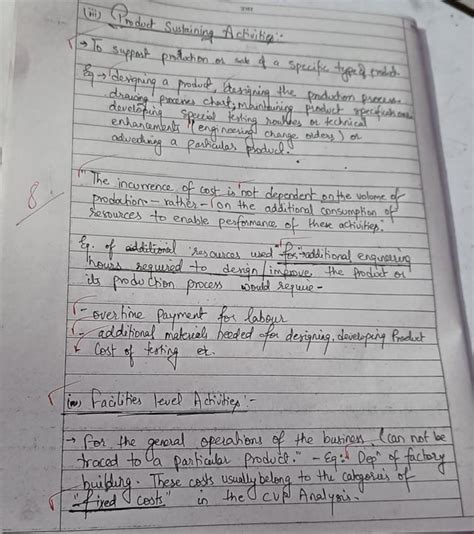 (iii) Product Sustaining Activities:-
→ To support production or sale of a specific type of product.
Eg → (designing a product, designing the production process
drawing process chart, maintaining product specifications
developing special testing routines or technical
enhancements "engineering change orders) or
advertising a particular product.
8
"The incurrence of cost is not dependent on the volume of
production - rather - (on the additional consumption of
resources to enable performance of these activities."
Eg. of additional resources used for "additional engineering
hours required to design/improve the product or
its production process would require -
- overtime payment for labour
- additional materials needed for designing, developing Product
cost of testing etc.
(iv) Facilities level Activities:-
→ For the general operations of the business. (can not be
traced to a particular product." - Eg: Depn of factory
building. These costs usually belong to the categories of
"fixed costs" in the CVP Analysis.